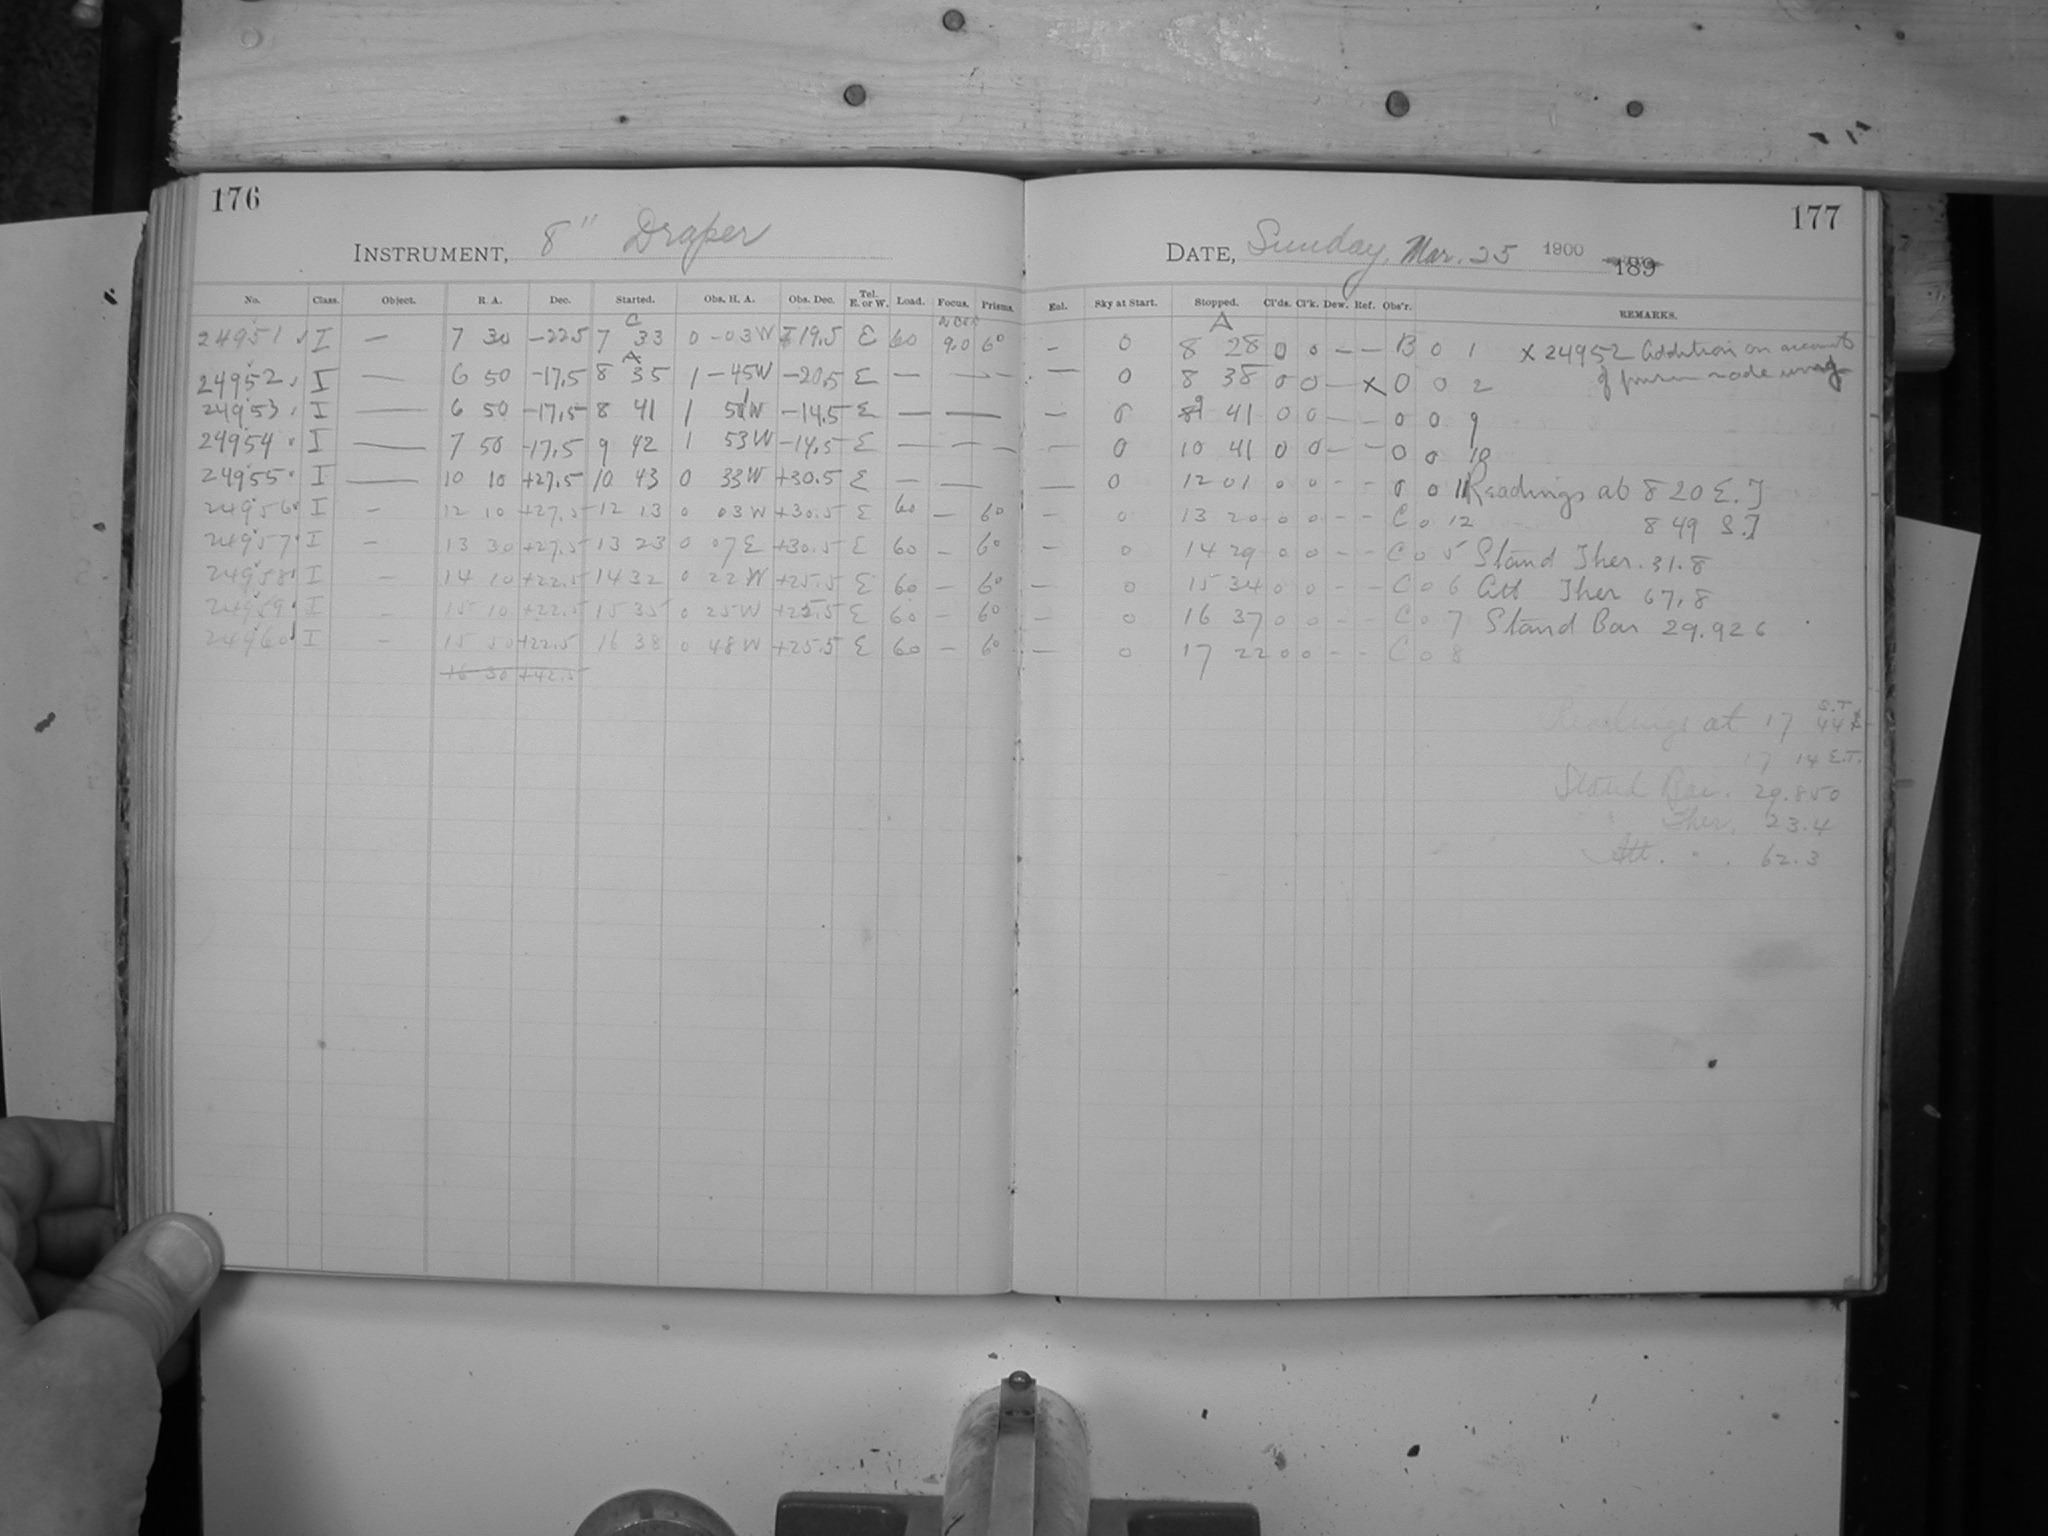 176
INSTRUMENT, 8" Draper
No. Class. Object. R. A. Dec. Started. Obs. H. A. Obs. Dec. Tel. E. or W. Load. Focus. Prisms.
24951 I — 7 30 -22.5 C 7 33 0 -03W 19.5 E 60 9.0 60
24952 I — 6 50 -17.5 A 8 35 1 -45W -20.5 E — — —
24953 I — 6 50 -17.5 8 41 1 51W -14.5 E — —
24954 I — 7 50 -17.5 9 42 1 53W -14.5 E — — —
24955 I — 10 10 +27.5 10 43 0 33W +30.5 E — —
24956 I — 12 10 +27.5 12 13 0 03W +30.5 E 60 — 60
24957 I — 13 30 +27.5 13 23 0 07E +30.5 E 60 — 60
24958 I — 14 10 +22.5 14 32 0 22W +25.5 E 60 — 60
24959 I — 15 10 +22.5 15 35 0 25W +25.5 E 60 — 60
24960 I — 15 50 +22.5 16 38 0 48W +25.5 E 60 — 60
16 30 +42.5
177
DATE, Sunday, Mar. 25 1900 189
Enl. Sky at Start. Stopped. Cl'ds. Cl'k. Dew. Ref. Obs'r. REMARKS.
— 0 A 8 28 0 0 — — B 0 1 X 24952 addition on account
— 0 8 38 0 0 — X 0 0 2 of
— 0 9 41 0 0 — — 0 0 9
— 0 10 41 0 0 — — 0 0 10
— 0 12 01 0 0 — — 0 0 11 Readings at 8 20 E.T
— 0 13 20 0 0 — — C 0 12 8 49 S.T
— 0 14 29 0 0 — — C 0 5 Stand Ther. 31.8
— 0 15 34 0 0 — — C 0 6 Att Ther 67.8
— 0 16 37 0 0 — — C 0 7 Stand Bar 29.926
— 0 17 22 0 0 — — C 0 8
Readings at 17 44 S.T.
17 14 E.T.
Stand Bar. 29.850
" Ther. 23.4
Att. " . 62.3